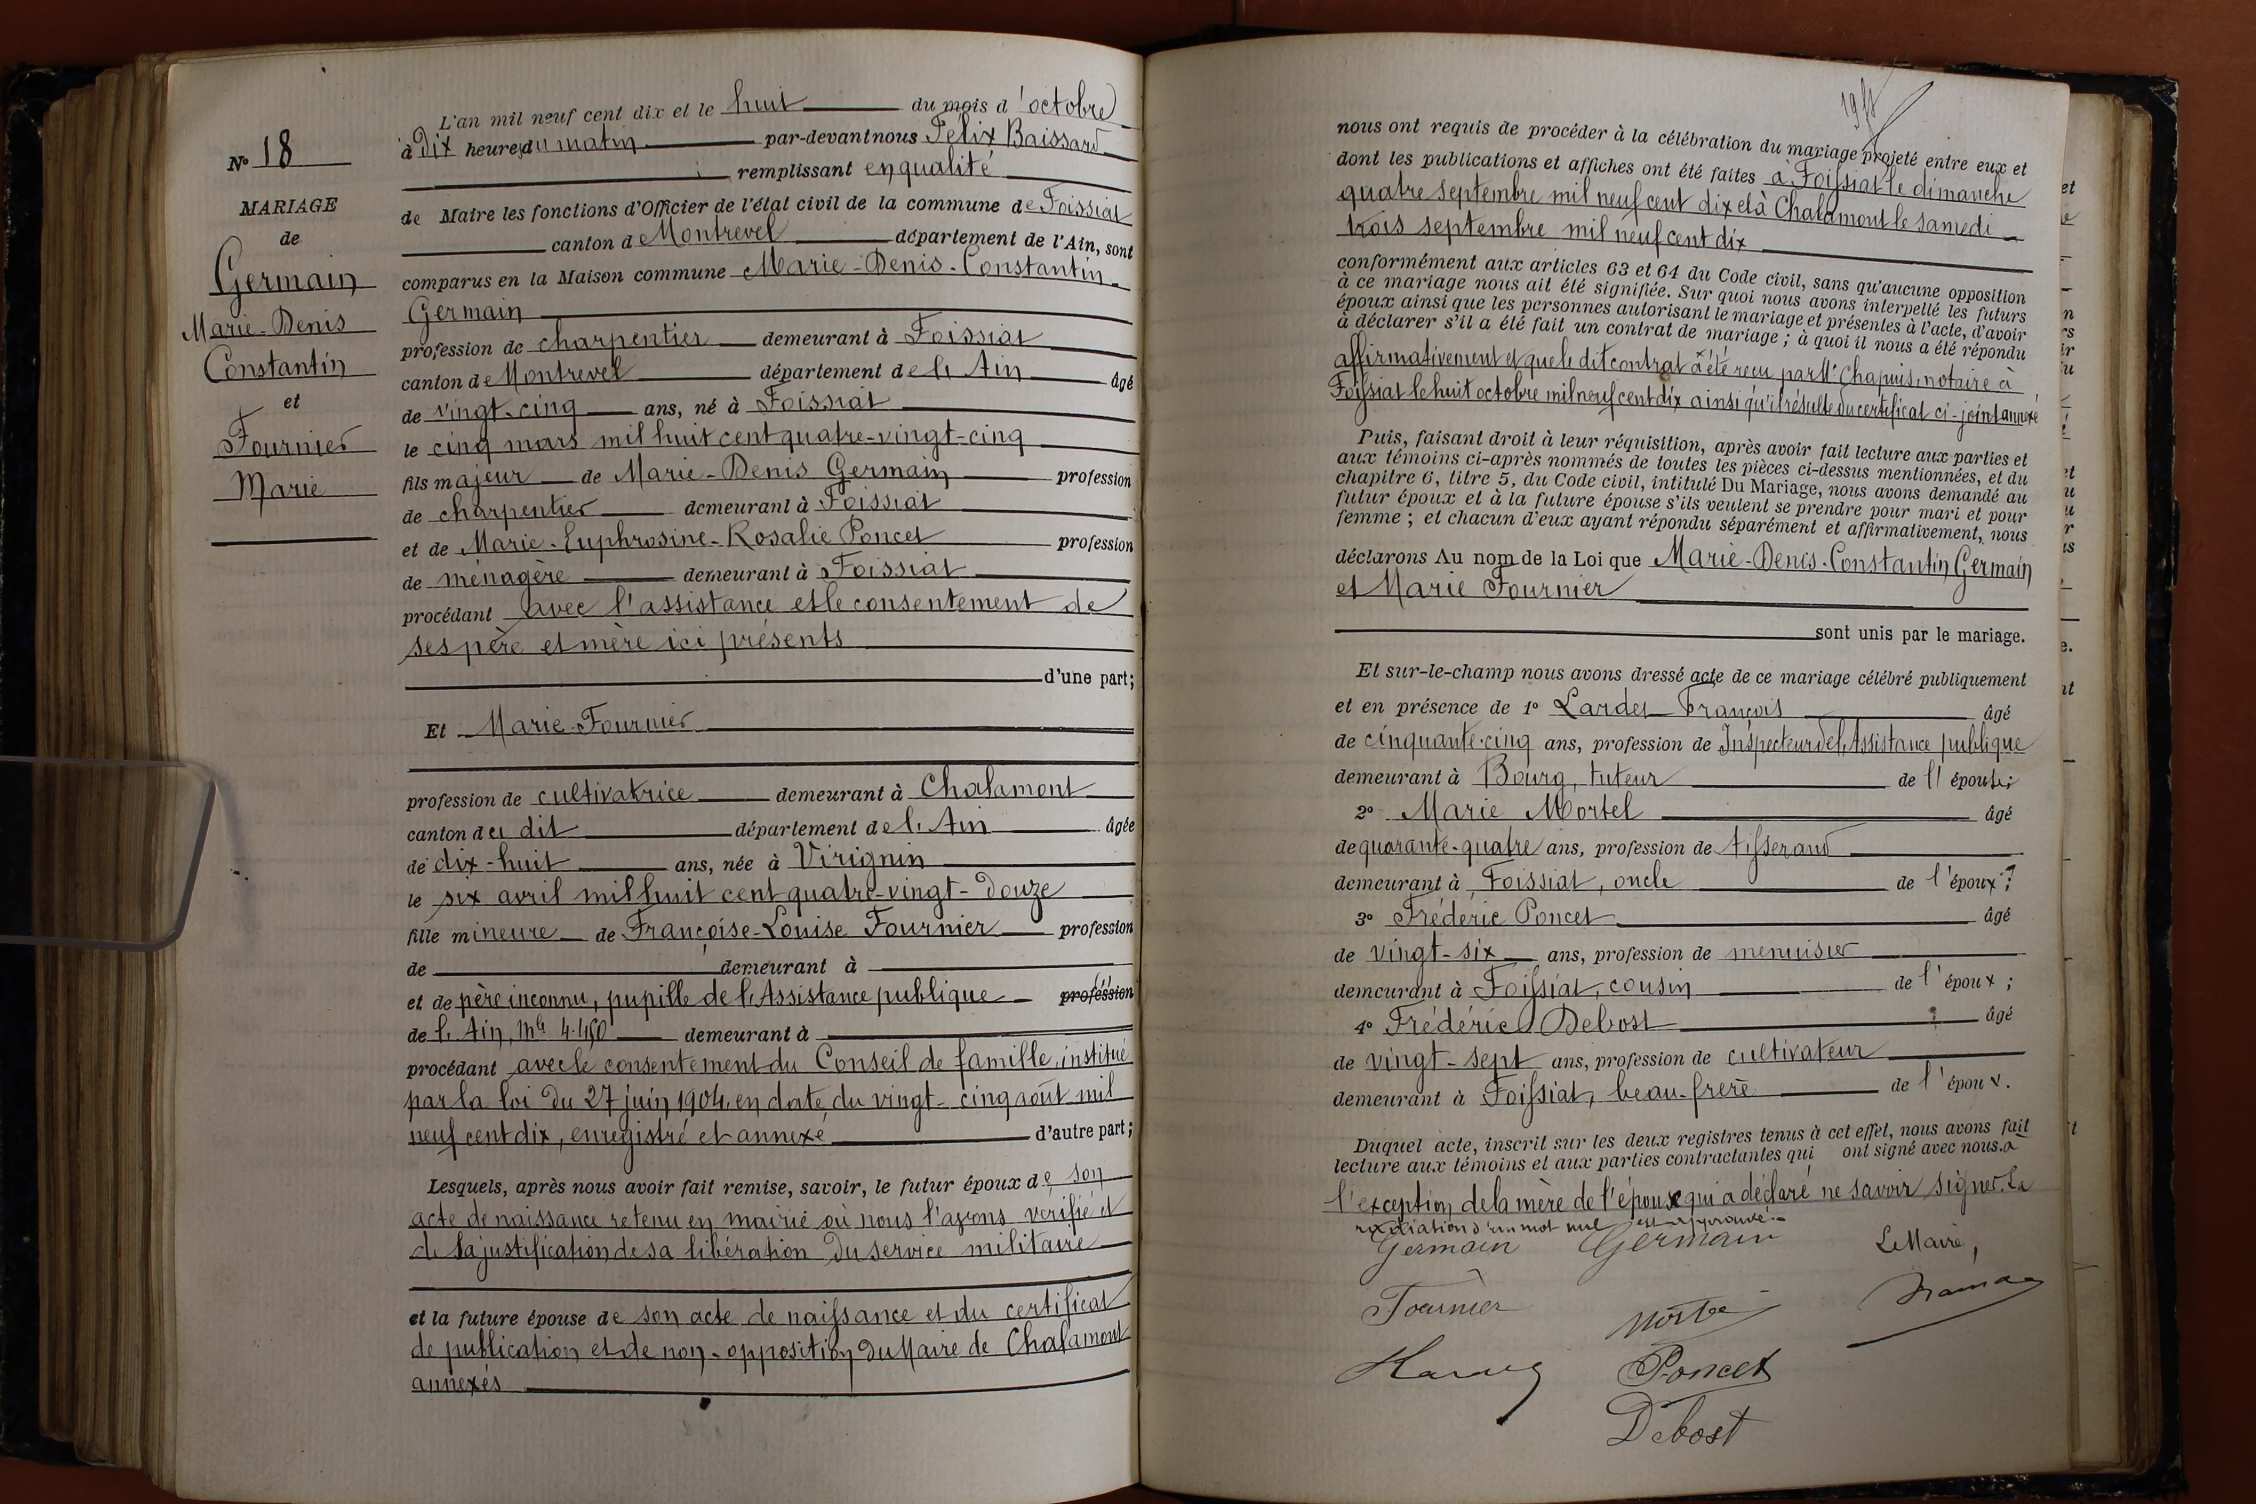 N° 18
MARIAGE
de
Germain
Marie-Denis
Constantin
et
Fournier
Marie
L'an mil neuf cent dix et le huit du mois d'octobre
à Dix heures du matin par-devant nous Félix Baissard
remplissant en qualité
de Maire les fonctions d'Officier de l'état civil de la commune de Foissiat
canton de Montrevel département de l'Ain, sont
comparus en la Maison commune Marie-Denis-Constantin
Germain
profession de charpentier demeurant à Foissiat
canton de Montrevel département de l'Ain âgé
de vingt-cinq ans, né à Foissiat
le cinq mars mil huit cent quatre-vingt-cinq
fils majeur de Marie-Denis Germain profession
de charpentier demeurant à Foissiat
et de Marie-Euphrosine-Rosalie Poncet profession
de ménagère demeurant à Foissiat
procédant avec l'assistance et le consentement de
ses père et mère ici présents
d'une part;
Et Marie Fournier
profession de cultivatrice demeurant à Chalamont
canton du dit département de l'Ain âgée
de dix-huit ans, née à Virignin
le six avril mil huit cent quatre-vingt-douze
fille mineure de Françoise-Louise Fournier profession
de demeurant à
et de père inconnu, pupille de l'Assistance publique profession
de l'Ain, Mle demeurant à
procédant avec le consentement du Conseil de famille, institué
par la loi du 27 juin 1904, en date du vingt-cinq août mil
neuf cent dix, enregistré et annexé d'autre part;
Lesquels, après nous avoir fait remise, savoir, le futur époux de son
acte de naissance retenu en mairie où nous l'avons vérifié et
de la justification de sa libération du service militaire
et la future épouse de son acte de naissance et du certificat
de publication et de non-opposition du Maire de Chalamont
annexés
nous ont requis de procéder à la célébration du mariage projeté entre eux et
dont les publications et affiches ont été faites à Foissiat le dimanche
quatre septembre mil neuf cent dix et à Chalamont le samedi
trois septembre mil neuf cent dix
conformément aux articles 63 et 64 du Code civil, sans qu'aucune opposition
à ce mariage nous ait été signifiée. Sur quoi nous avons interpellé les futurs
époux ainsi que les personnes autorisant le mariage et présentes à l'acte, d'avoir
à déclarer s'il a été fait un contrat de mariage; à quoi il nous a été répondu
affirmativement et que le dit contrat a été reçu par Me Chapuis, notaire à
Foissiat le huit octobre mil neuf cent dix ainsi qu'il résulte du certificat ci-joint annexé
Puis, faisant droit à leur réquisition, après avoir fait lecture aux parties et
aux témoins ci-après nommés de toutes les pièces ci-dessus mentionnées, et du
chapitre 6, titre 5, du Code civil, intitulé Du Mariage, nous avons demandé au
futur époux et à la future épouse s'ils veulent se prendre pour mari et pour
femme; et chacun d'eux ayant répondu séparément et affirmativement, nous
déclarons Au nom de la Loi que Marie-Denis-Constantin Germain
et Marie Fournier
sont unis par le mariage.
Et sur-le-champ nous avons dressé acte de ce mariage célébré publiquement
et en présence de 1° Lardet François âgé
de cinquante-cinq ans, profession de Inspecteur de l'Assistance publique
demeurant à Bourg, tuteur de l'épouse;
2° Marie Mortel âgé
de quarante-quatre ans, profession de tisserand
demeurant à Foissiat, oncle de l'époux;
3° Frédéric Poncet âgé
de vingt-six ans, profession de menuisier
demeurant à Foissiat, cousin de l'époux;
4° Frédéric Debost âgé
de vingt-sept ans, profession de cultivateur
demeurant à Foissiat, beau-frère de l'époux.
Duquel acte, inscrit sur les deux registres tenus à cet effet, nous avons fait
lecture aux témoins et aux parties contractantes qui ont signé avec nous à
l'exception de la mère de l'époux qui a déclaré ne savoir signer. La
radiation d'un mot nul est approuvée.
Germain Germain Le Maire,
Fournier
Poncet
Debost